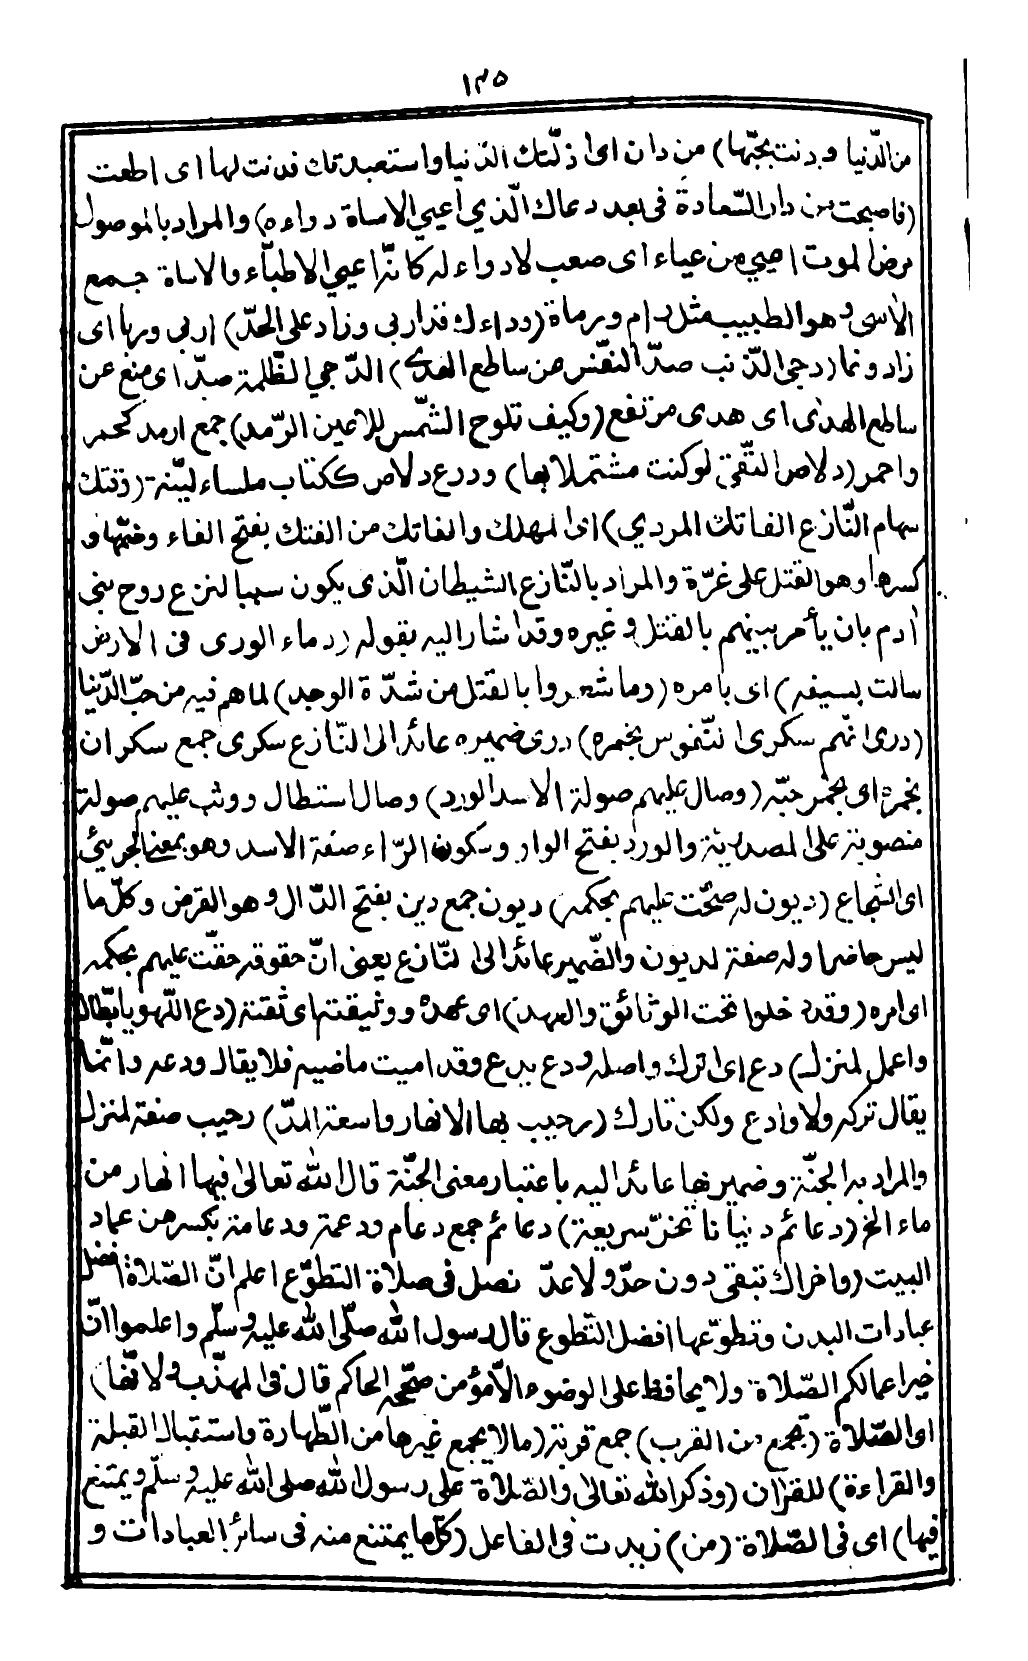 ١٣٥
من الدّنيا ودنت بحبّها) من دان اى ذلّتك الدّنيا واستعبدتك فدنت لها اى اطعت
(فاصبحت من دار السّعادة فى بعد دعاك الّذي اعيي الاساة دواءه) والمراد بالموصول
مرض الموت اعيي من عياء اى صعب لا دواء له كانّه اعيي الاطبّاء والاساة جمع
الاٰسى وهو الطبيب مثل رام ورماة (وداءك قد اربى وزاد على الحدّ) اربى وربا اى
زاد ونما (دجى الذنب صدّ النفس من ساطع الهدى) الدّجي الظّلمة صدّ اى منع عن
ساطع الهدٰى اى هدى مرتفع (وكيف تلوح الشّمس للاعين الرّمد) جمع ارمد كحمر
واحمر (دلاص التّقى لو كنت مشتملا بها) ودرع دلاص ككتاب ملساء ليّنة (وقتك
سهام النّازع الفاتك المردي) اى المهلك والفاتك من الفتك بفتح الفاء وضمّها و
كسرها وهو القتل على غرّة والمراد بالنّازع الشيطان الّذى يكون سببا لنزع روح بنى
اٰدم بان يأمر بينهم بالقتل وغيره وقد اشار اليه بقوله (دماء الورى فى الارض
سالت بسيفه) اى بامره (وما شعروا بالقتل من شدّة الوجد) لما هم فيه من حبّ الدّنيا
(درى انّهم سكرى النّفوس بخمره) درى ضميره عائد الى النّازع سكرى جمع سكران
بخمره اى بخمر حبّه (وصال عليهم صولة الاسد الورد) وصال استطال ووثب عليهم صولة
منصوبة على المصدريّة والورد بفتح الواو وسكون الرّاء صفة الاسد وهو بمعنى الجرئي
اى الشجاع (ديون له صحّت عليهم بحكمه) ديون جمع دين بفتح الدّال وهو القرض وكلّ ما
ليس حاضرا وله صفة لديون والضّمير عائد الى النّازع يعنى انّ حقوقه حقّت عليهم بحكمه
اى امره (وقد دخلوا تحت الوثائق والعهد) اى عهده ووثيقته اى ثقته (دع اللّهو يا بطّال
واعمل لمنزل) دع اى اترك واصله ودع يدع وقد اميت ماضيه فلا يقال ودعه وانّما
يقال تركه ولا وادع ولكن تارك (رحيب بها الانهار واسعة المدّ) رحيب صفة لمنزل
والمراد به الجنّة وضمير بها عائد اليه باعتبار معنى الجنّة قال الله تعالى فيها انهار من
ماء الخ (دعائم دنيانا تخرّ سريعة) دعائم جمع دعام ودعمة ودعامة بكسرهن عماد
البيت (واخراك تبقى دون حدّ ولا عدّ فصل فى صلاة التطوّع اعلم انّ الصّلاة افضل
عبادات البدن وتطوّعها افضل التّطوع قال رسول الله صلّى الله عليه وسلّم واعلموا انّ
خير اعمالكم الصّلاة ولا يحافظ على الوضوء الّا مؤمن صحّحه الحاكم قال فى المهذّب ولانّها)
اى الصّلاة (تجمع من القرب) جمع قربة (ما لا يجمع غيرها من الطّهارة واستقبال القبلة
والقراءة) للقراٰن (وذكر الله تعالى والصّلاة على رسول الله صلى الله عليه وسلّم ويمتنع
فيها) اى فى الصّلاة (من) زيدت فى الفاعل (كلّ ما يمتنع منه فى سائر العبادات و